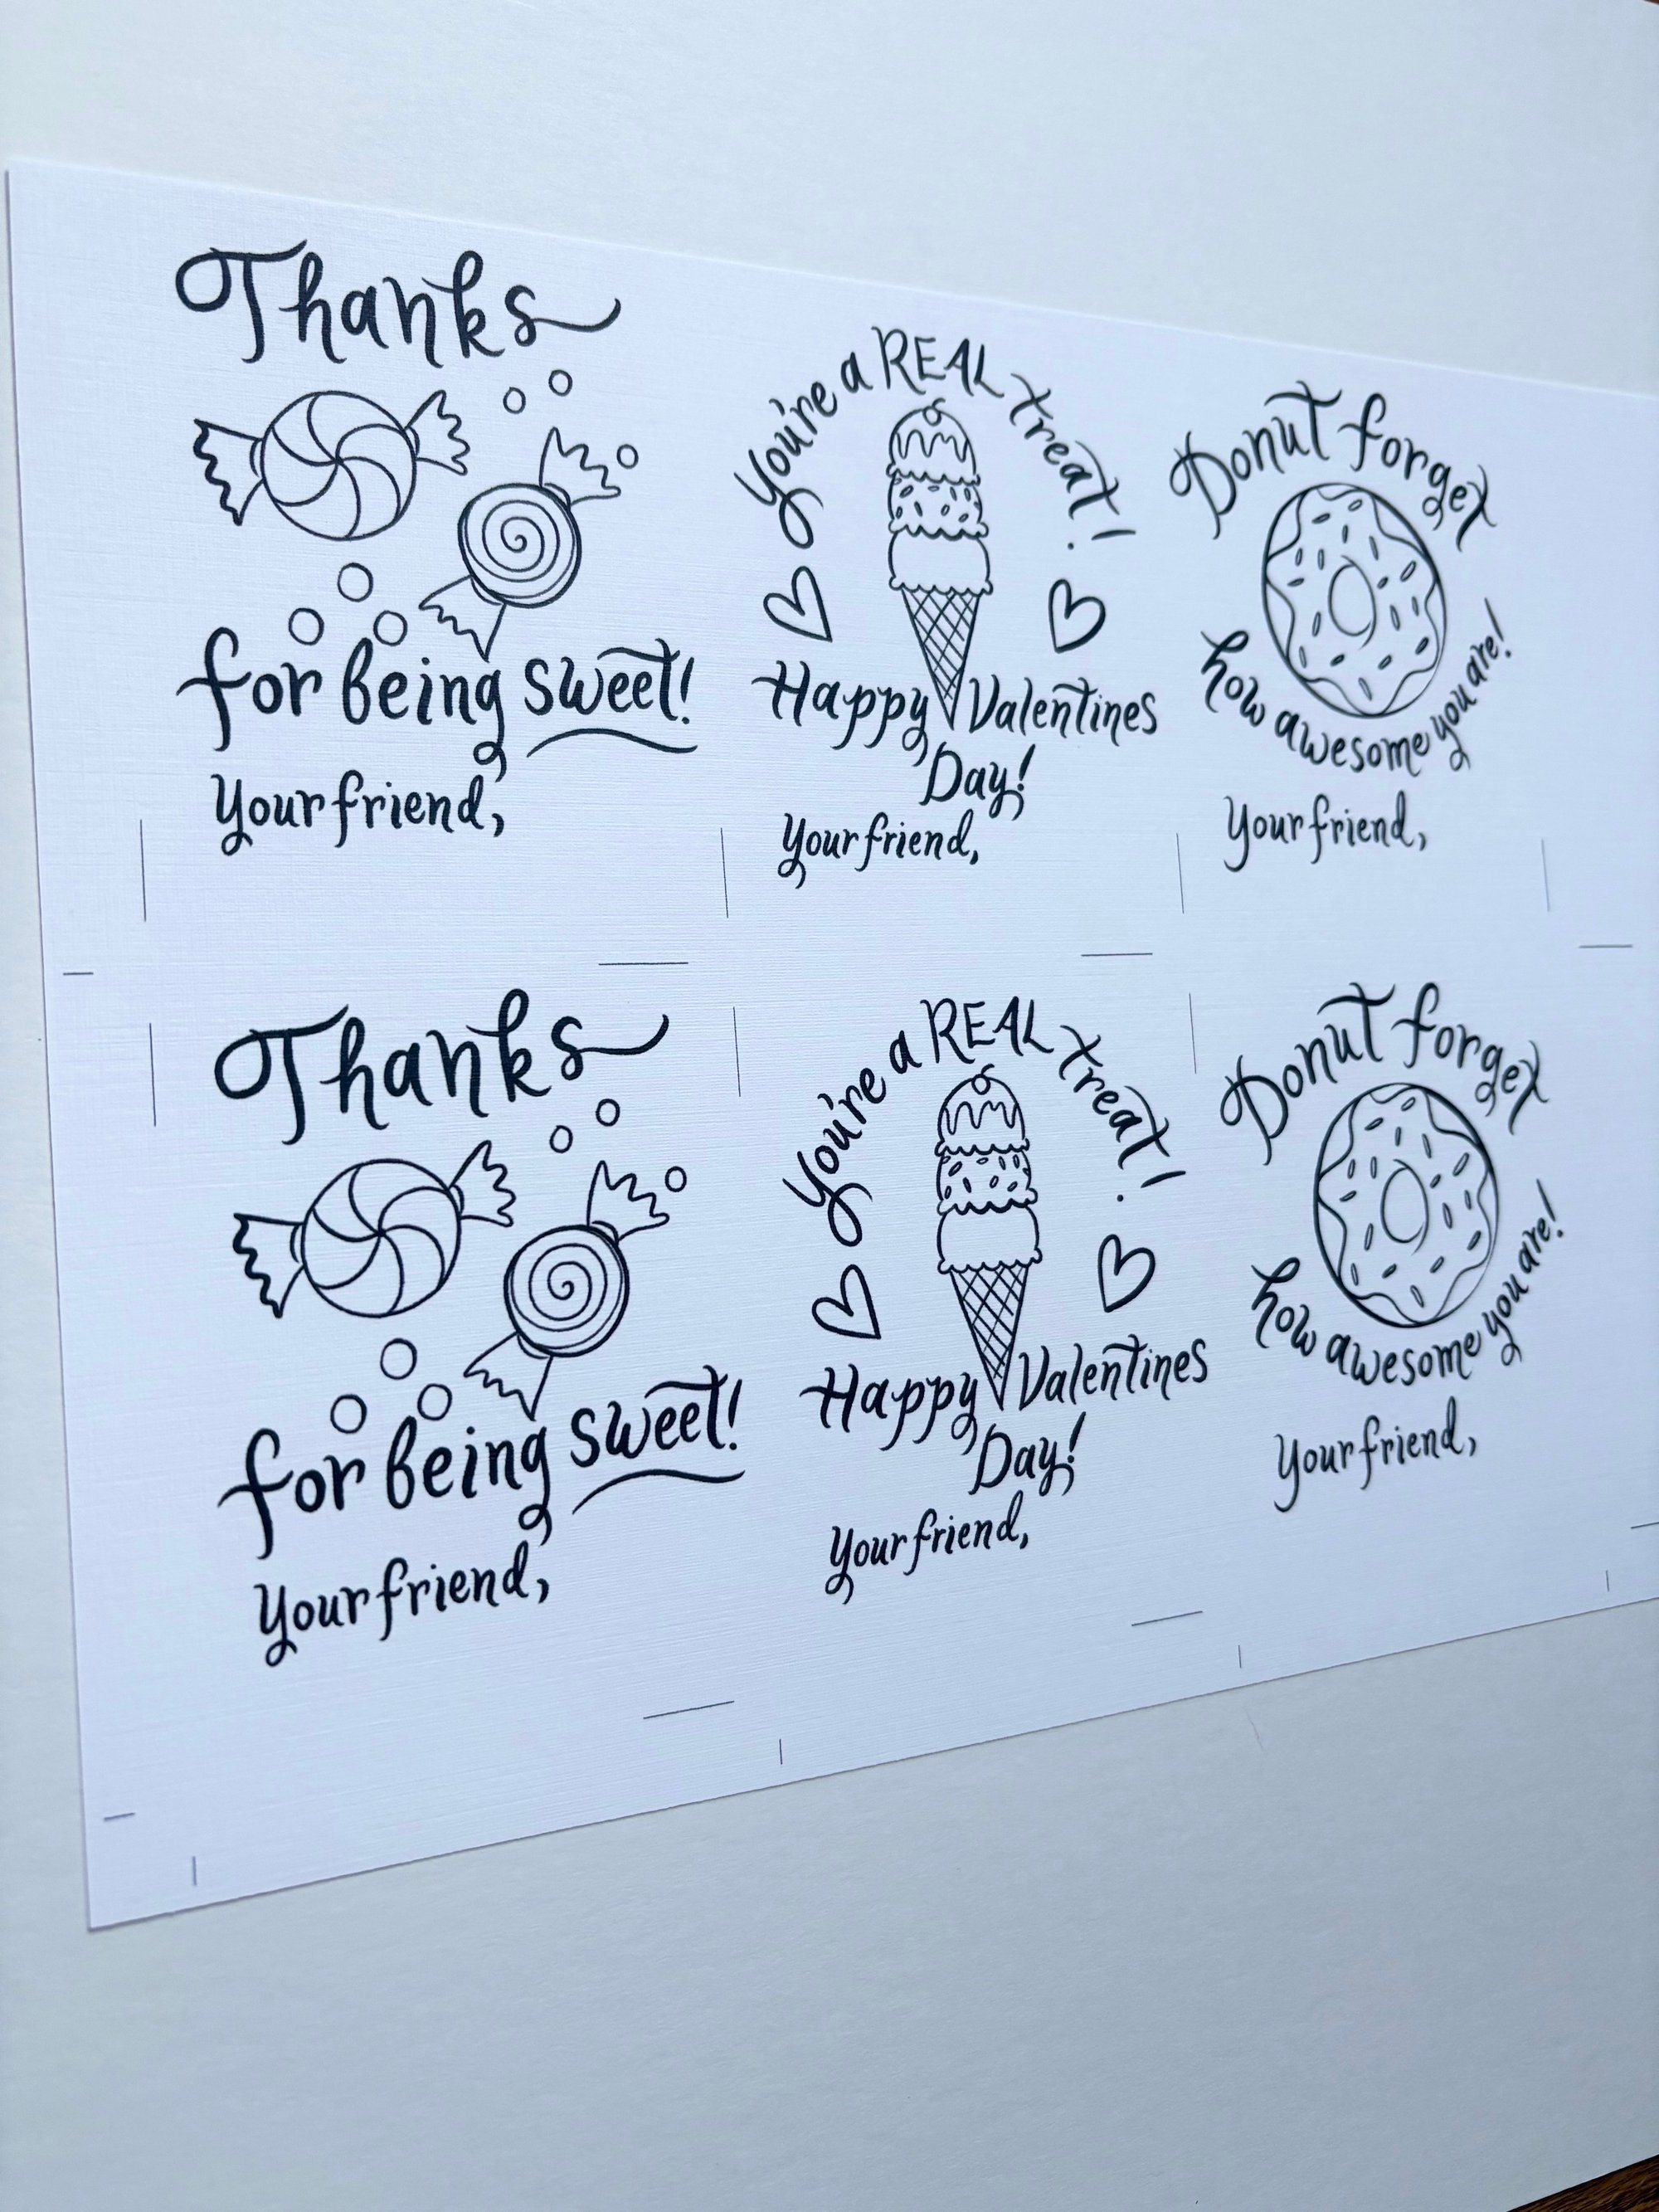 Thanks
for being sweet!
Your friend,
You're a REAL treat!
Happy Valentines
Day!
Your friend,
Donut forget
how awesome you are!
Your friend,
Thanks
for being sweet!
Your friend,
You're a REAL treat!
Happy Valentines
Day!
Your friend,
Donut forget
how awesome you are!
Your friend,